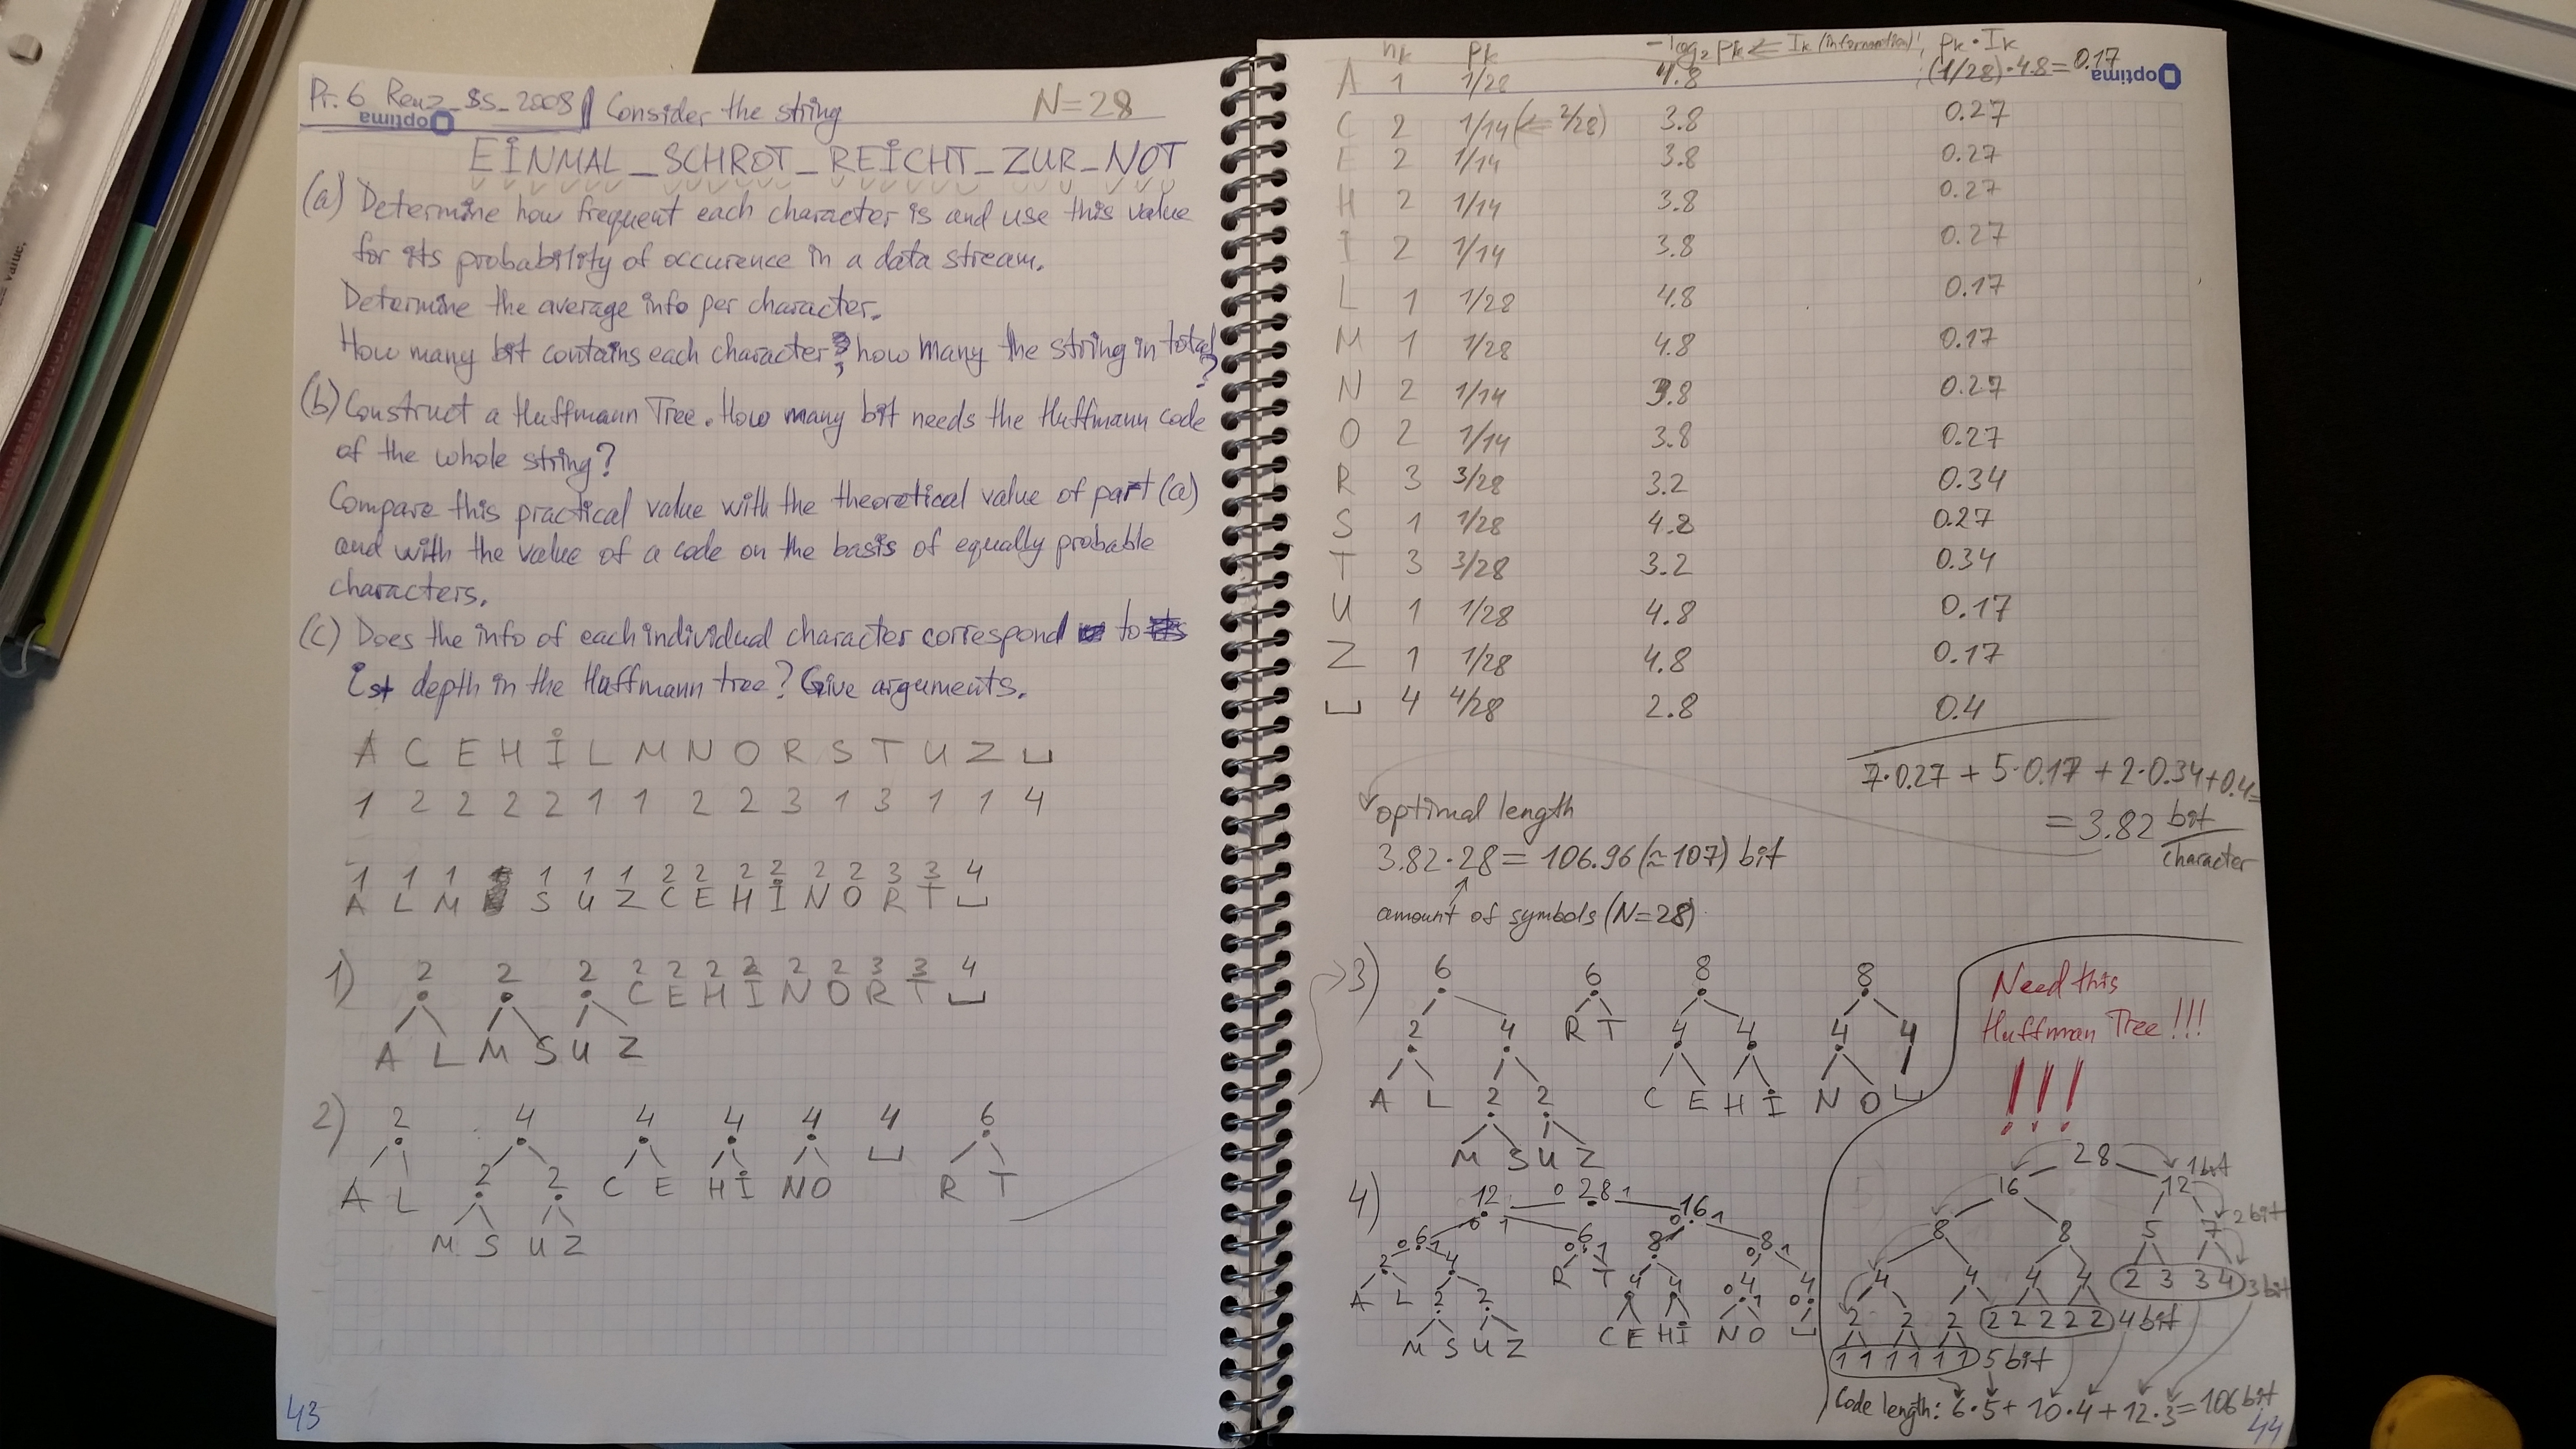 Pr. 6 Renz_SS_2008 | Consider the string N=28
Optima
EINMAL_SCHROT_REICHT_ZUR_NOT
(a) Determine how frequent each character is and use this value
for its probability of occurence in a data stream.
Determine the average info per character.
How many bit contains each character? how many the string in total
?
(b) Construct a Huffmann Tree. How many bit needs the Huffmann code
of the whole string?
Compare this practical value with the theoretical value of part (a)
and with the value of a code on the basis of equally probable
characters.
(c) Does the info of each individual character correspond to
ist depth in the Huffmann tree? Give arguments.
A C E H I L M N O R S T U Z ␣
1 2 2 2 2 1 1 2 2 3 1 3 1 1 4
1 1 1 1 1 1 2 2 2 2 2 2 3 3 4
A L M S U Z C E H I N O R T ␣
1) 2 2 2 2 2 2 2 2 2 3 3 4
C E H I N O R T ␣
A L M S U Z
2) 2 4 4 4 4 4 6
␣
2 2
A L C E H I N O R T
M S U Z
43
nk pk -log2 pk ⇐ Ik (information) pk · Ik
A 1 1/28 4.8 (1/28)·4.8=0.17
Optima
C 2 1/14(⇐ 2/28) 3.8 0.27
E 2 1/14 3.8 0.27
H 2 1/14 3.8 0.27
I 2 1/14 3.8 0.27
L 1 1/28 4.8 0.17
M 1 1/28 4.8 0.17
N 2 1/14 3.8 0.27
O 2 1/14 3.8 0.27
R 3 3/28 3.2 0.34
S 1 1/28 4.8 0.27
T 3 3/28 3.2 0.34
U 1 1/28 4.8 0.17
Z 1 1/28 4.8 0.17
␣ 4 4/28 2.8 0.4
7·0.27 + 5·0.17 + 2·0.34+0.4=
= 3.82 bit/character
optimal length
3.82·28 = 106.96 (≈107) bit
amount of symbols (N=28)
3) 6 6 8 8
2 4 R T 4 4 4 4
A L 2 2 C E H I N O ␣
M S U Z
4) 12 0 28 1 16
0 1 0 1
0 6 1 6 8 8
2 4 R T 4 4 4 4
A L 2 2 C E H I N O ␣
M S U Z
Need this
Huffman Tree !!!
!!!
28
16 12 1bit
8 8 5 7 2bit
4 4 4 4 2 3 3 4 3bit
2 2 2 2 2 2 2 2 4bit
1 1 1 1 1 1 5bit
Code length: 6·5 + 10·4 + 12·3 = 106 bit
44